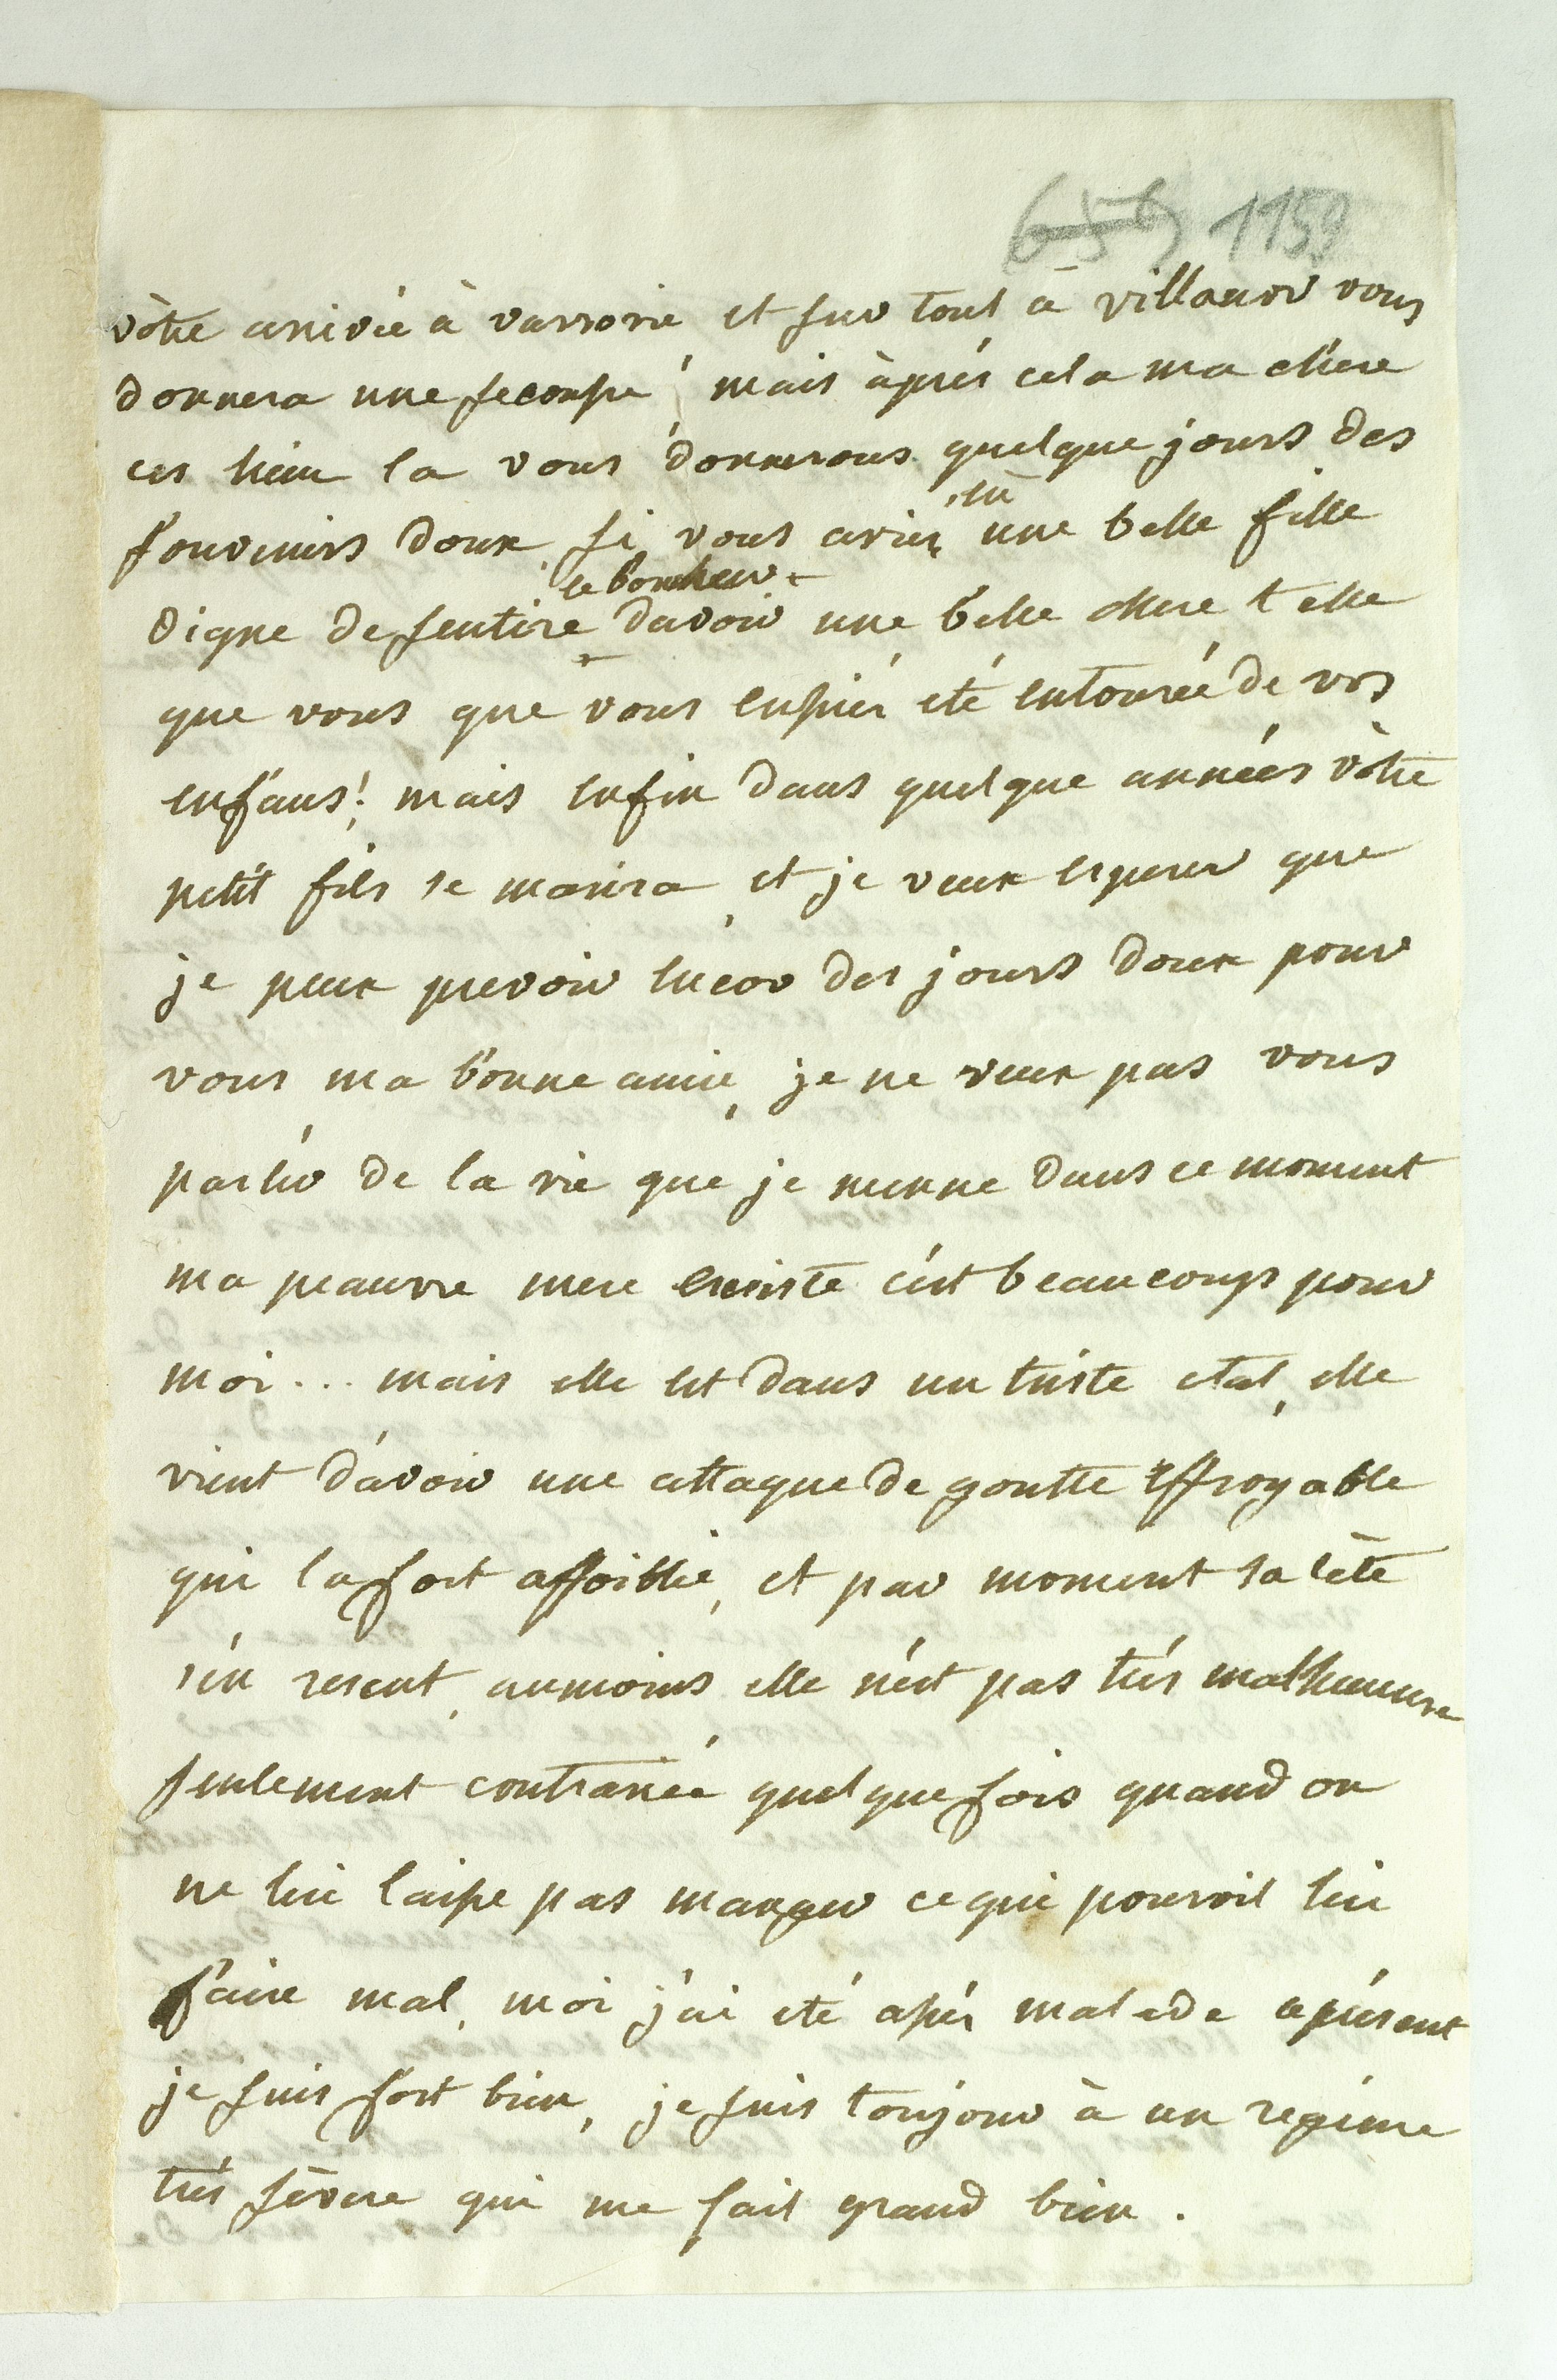 656 1159
vòtre arivée à varsovie et sur tout à villanov vous
donnera une secousse! mais àprés cela ma chere
ces lieux la vous donnerons quelque jours des
souvenirs doux, si vous aviez eu une belle fille
digne de sentire le bonheur davoir une belle mere telle
que vous que vous eussiés eté entourée de vos
enfans! mais enfin dans quelque années vòtre
petit fils se marira, et je veux esperer que
je peux prevoir encor des jours doux pour
vous ma bonne amie, je ne veux pas vous
parler de la vie que je menne dans ce moment
ma peauvre mere existe c'est beaucoups pour
moi... mais elle est dans un triste etat, elle
vient d'avoir une attaque de goutte effroyable
qui la fort affoiblie, et par moment sa tète
s'en resent, aumoins elle n'est pas trés malheureuse
seulement contrariée quelque fois quand on
ne lui laisse pas manger ce qui pouroit lui
faire mal, moi j'ai eté assés malade aprésent
je suis fort bien, je suis toujour à un regime
trés sévere qui me fait grand bien.